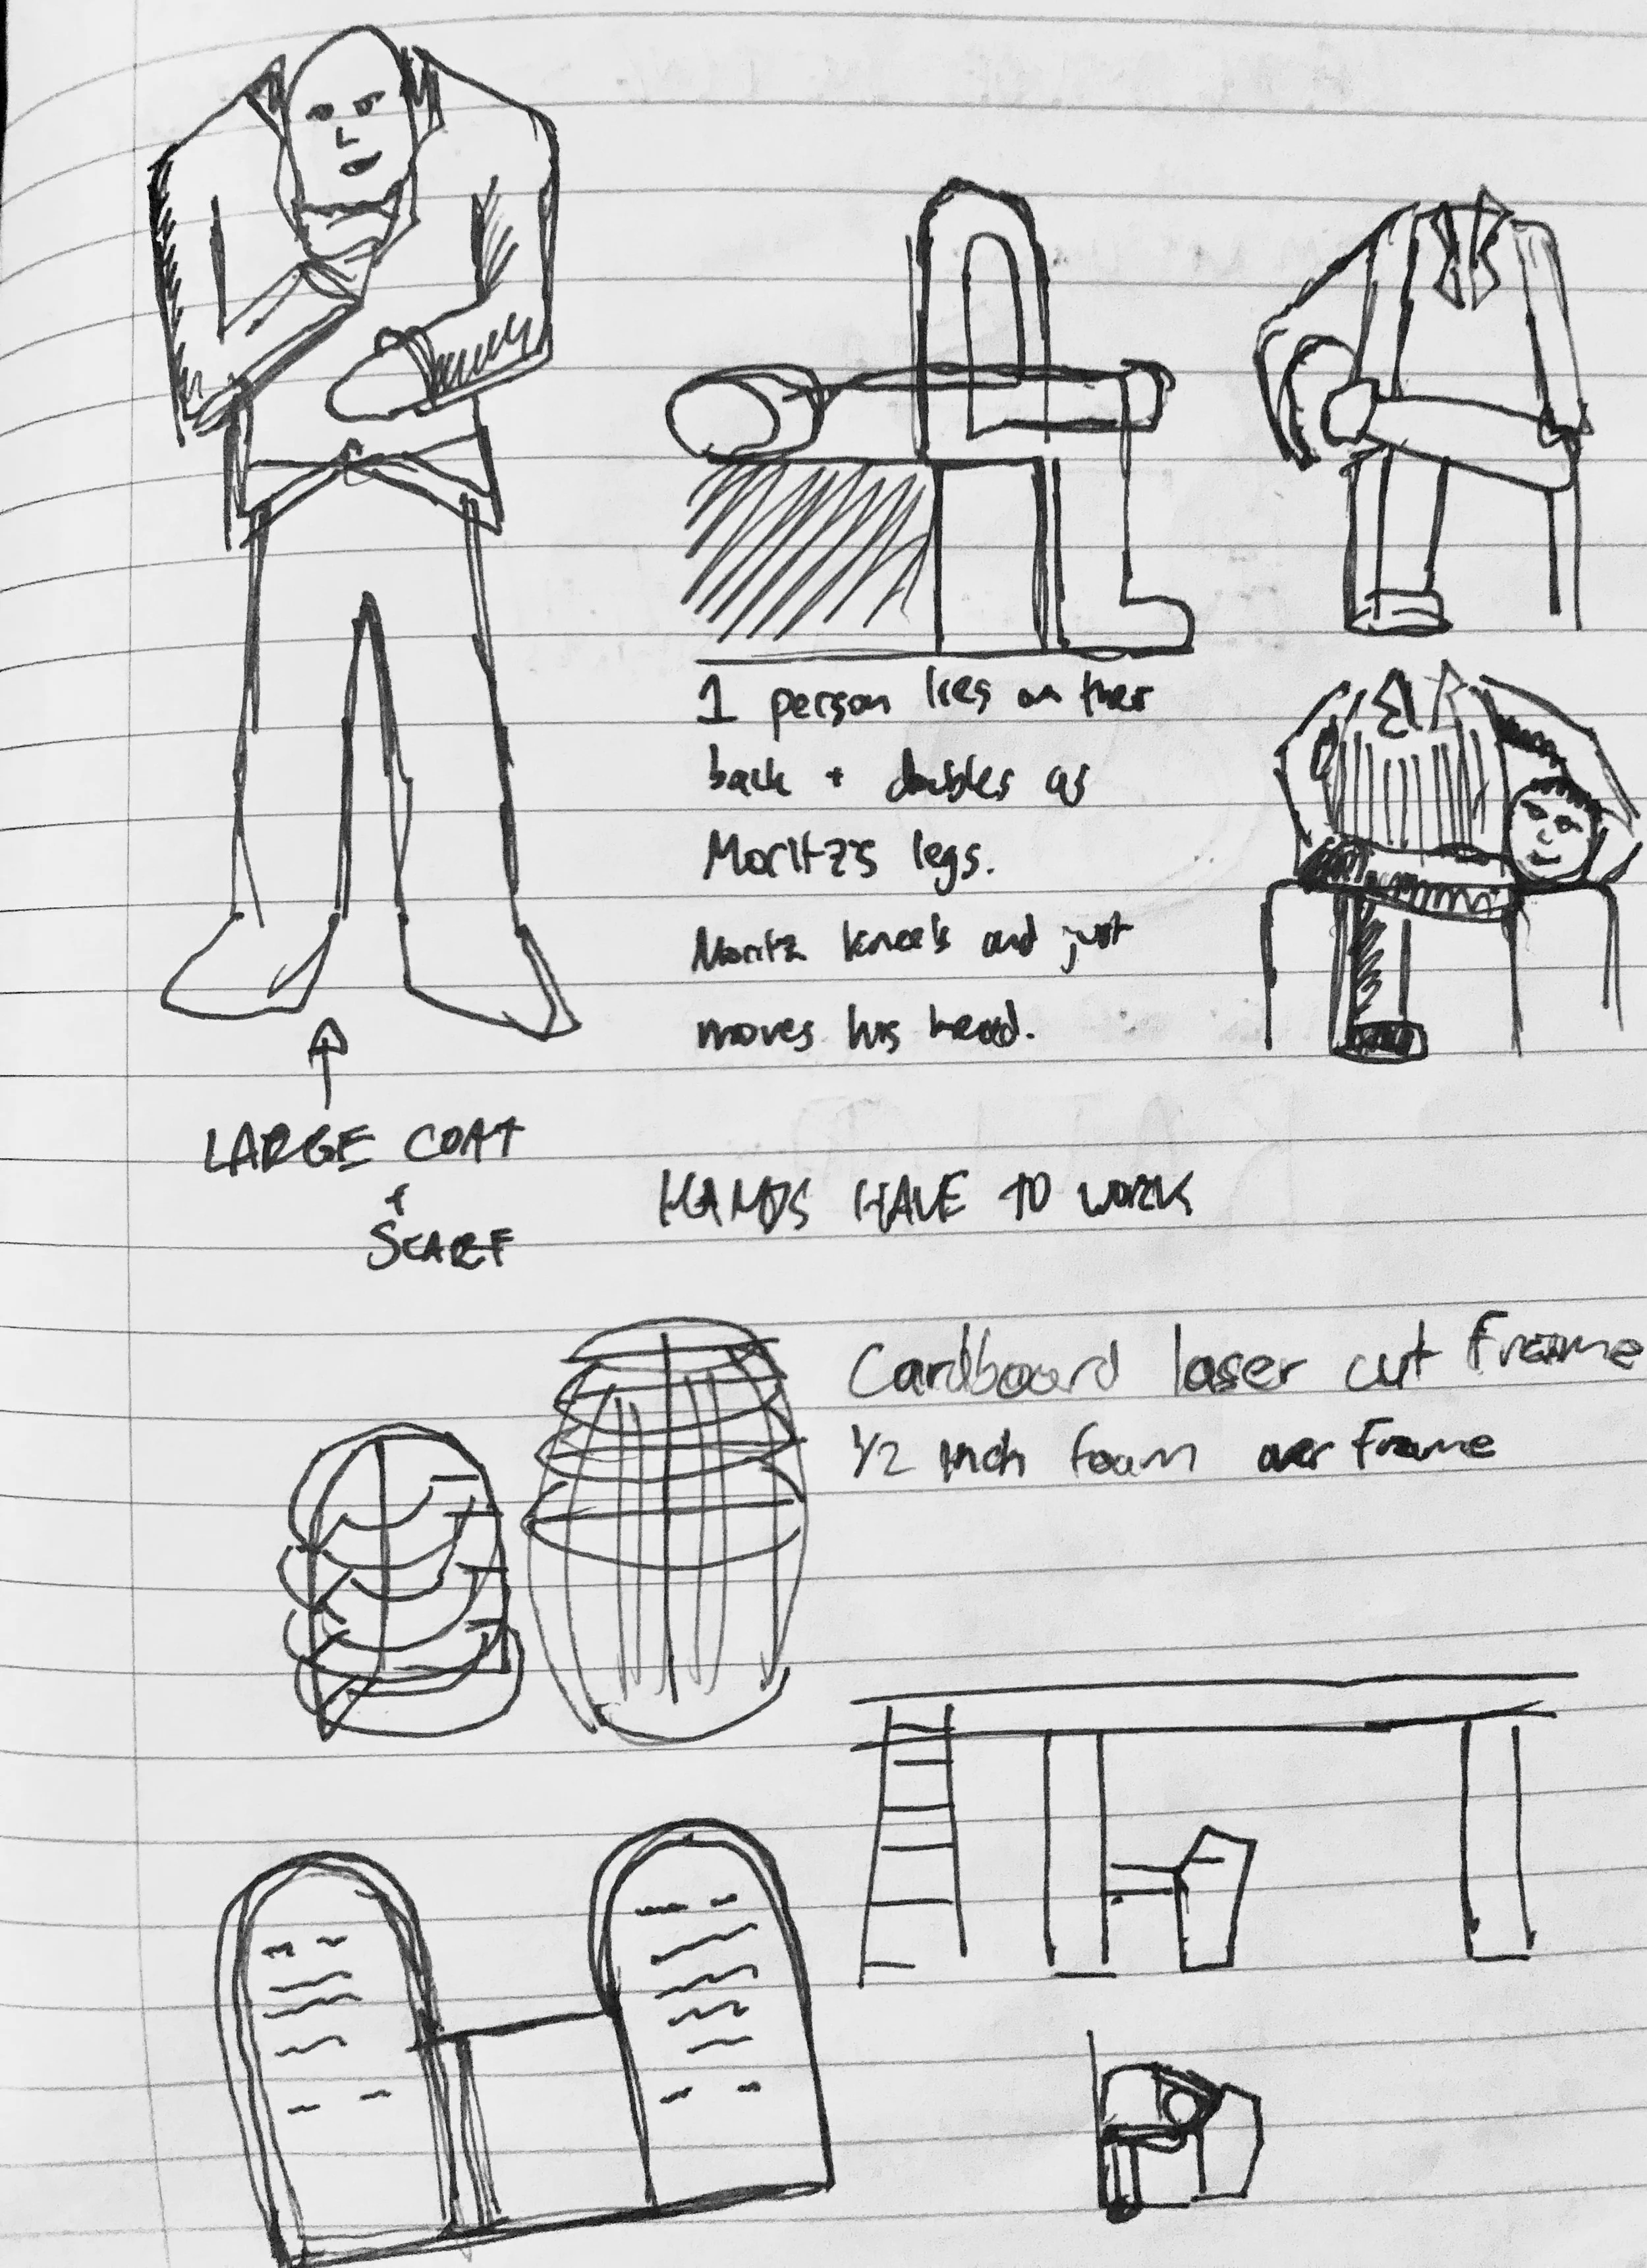 1 person lies on their
back + doubles as
Moritz's legs.
Moritz kneels and just
moves his head.
LARGE COAT
+
SCARF
HANDS HAVE TO WORK
Cardboard laser cut Frame
1/2 inch foam over Frame